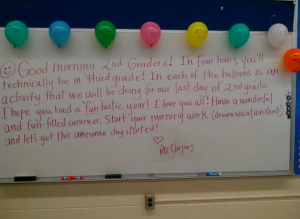 Good morning 2nd Graders! In four hours, you'll
technically be in third grade! In each of the balloons is an
activity that we will be doing for our last day of 2nd grade.
I hope you had a "fun"tastic year! I love you all! Have a wonderful
and fun-filled summer. Start your morning work (dream vacation sheet)
and let's get this awesome day started!
Ms.